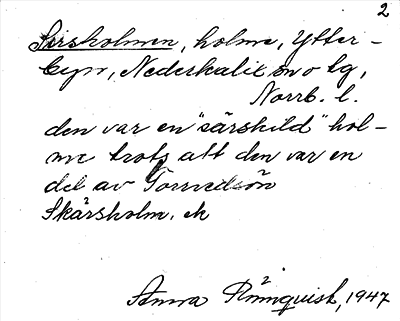 2
Särsholmen, holme, Ytter-
byn, Nederkalix sn o tg,
Norrb. l.
den var en "särskild" hol-
me trots att den var en
del av
Skärsholm.
Anna Rönnquist, 1947